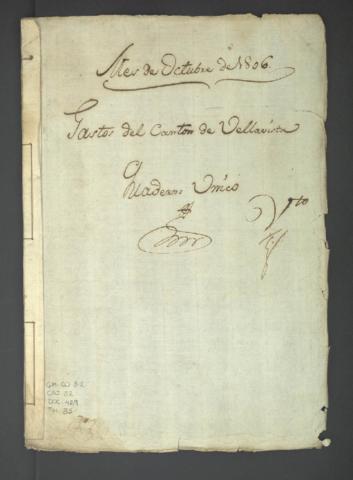 Mes de Octubre de 1806
Gastos del Canton de Vellavista
Quaderno Unico
CAJ 52
DOC 489